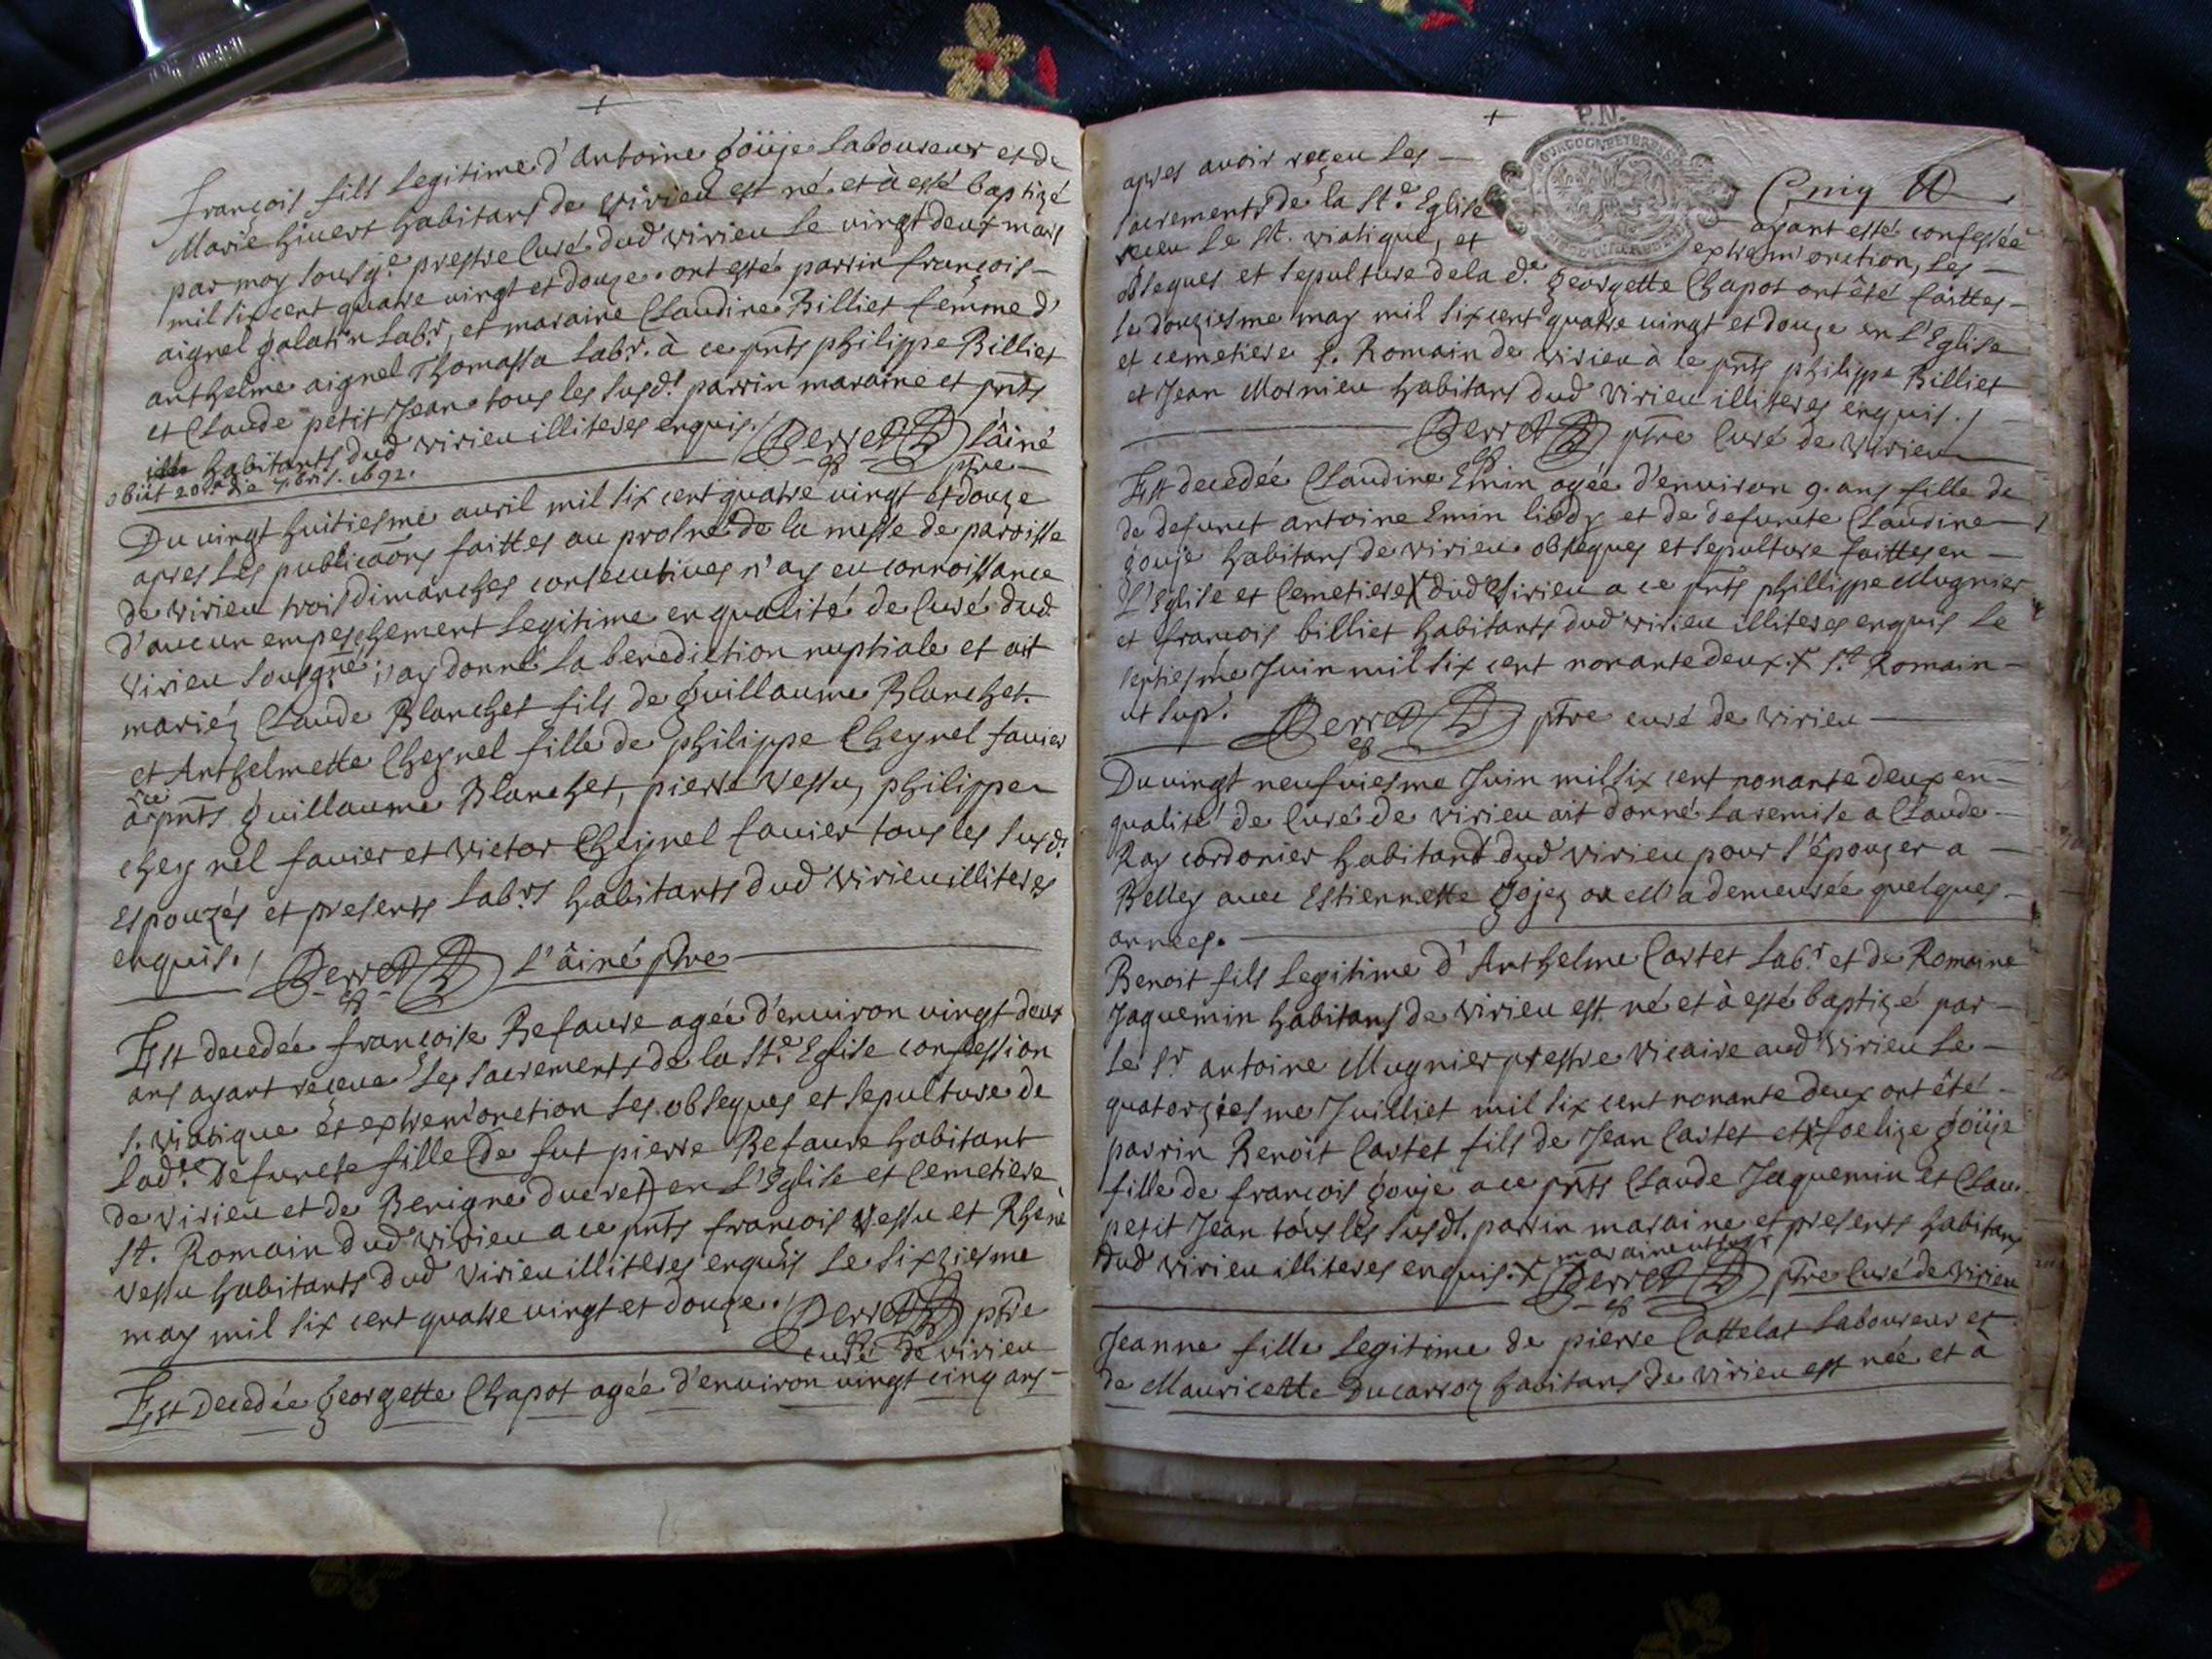 François fils legitime d'Antoine goüje laboureur et de
Marie hiuert habitans de virieu est né et à esté baptizé
par moy sousg.e prestre Curé dud virieu le vingt deux mars
mil six cent quatre vingt et douze. ont esté parrin françois
aignel galatin lab.r, et maraine Claudine Billiet femme d'
anthelme aignel Thomassa lab.r. à ce pnts philippe Billiet
et Claude petit Jean tous les susd.t parrin maraine et pnts
habitants dud virieu illiteres enquis. / Perret l'âiné
obiit 20 die 7.bris. 1692. ptre
Du vingt huitiesme auril mil six cent quatre vingt et douze
apres les publicaõns faittes au prosne de la messe de paroisse
de virieu trois dimanches consecutiues n'ay eu connoissance
d'aucun empeschement legitime en qualité de Curé dud
virieu sousgné, j'ay donné la benediction nuptiale et ait
mariéz Claude Blanchet fils de guillaume Blanchet
et Anthelmette Cheynel fille de philippe Cheynel fauier
à ce pnts guillaume Blanchet, pierre vessu, philippe
cheynel fauier et victor Cheynel fauier tous les susd.t
espouzés et presents lab.rs habitants dud virieu illiteres
enquis. / Perret l'âiné ptre
Est decedée françoise Refaure agée d'enuiron vingt deux
ans ayant receue les sacrements de la St.e Eglise confession
s. viatique et extrem'onction les obseques et sepulture de
lad.te defuncte fille (de fut pierre Refaure habitant
de virieu et de Benigne ducret) en l'Eglise et Cemetiere
St. Romain dud virieu a ce pnts francois vessu et Rhené
vessu habitants dud virieu illiteres enquis le sixziesme
may mil six cent quatre vingt et douze. / Perret ptre
curé de virieu
Est decedée georgette Chapot agée d'enuiron vingt cinq ans
P.N.
apres avoir reçeu les
Cniq
sacrements de la St.e Eglise ayant esté confessée
receu le St. viatique, et extrem'onction, les
obseques et sepulture dela d.e georgette Chapot ont été faittes
le douziesme may mil six cent quatre vingt et douze en l'Eglise
et cemetiere s. Romain de virieu à ce pnts philippe Billiet
et Jean Mornieu habitans dud virieu illiteres enquis. /
Perret ptre Curé de virieu
Est decedée Claudine Emin agée d'enuiron 9. ans fille de
de defunct antoine Emin et de defuncte Claudine
gouje habitans de virieu obseques et sepulture faittes en
l'Eglise et Cemetiere X dud virieu a ce pnts phillippe Mugnier
et francois billiet habitants dud virieu illiteres enquis le
septiesme Juin mil six cent nonante deux. X s.t Romain
ut sup.r Perret ptre curé de virieu
Du vingt neufuiesme Juin mil six cent nonante deux en
qualité de Curé de virieu ait donné la remise a Claude
Ray cordonier habitant dud virieu pour s'épouzer a
Belley auec Estiennette gojez ou ell'a demeurée quelques
annees.
Benoit fils legitime d'Anthelme Cartet lab.r et de Romaine
Jaquemin habitans de virieu est né et à esté baptizé par
le Sr antoine Mugnier prestre vicaire aud virieu le
quatorziesme Juilliet mil six cent nonante deux ont été
parrin Benoit Cartet fils de Jean Cartet et X foelize goüje
fille de françois gouje a ce pnts Claude Jaquemin et Clau.
petit Jean tous les susdt. parrin maraine et presents habitans
dud virieu illiteres enquis. X maraine ut sup.r Perret ptre Curé de virieu
Jeanne fille legitime de pierre Cattelat laboureur et
de Mauricette Ducarroz habitans de virieu est née et à